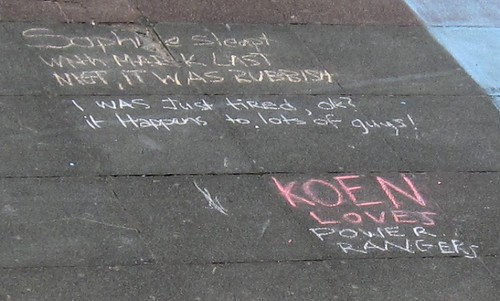 Sophie slept
with MARK LAST
NIGT, IT WAS RUBBISH
I WAS Just tired, ok?
it Happens to lots of guys!
KOEN
LOVES
POWER
RANGERS